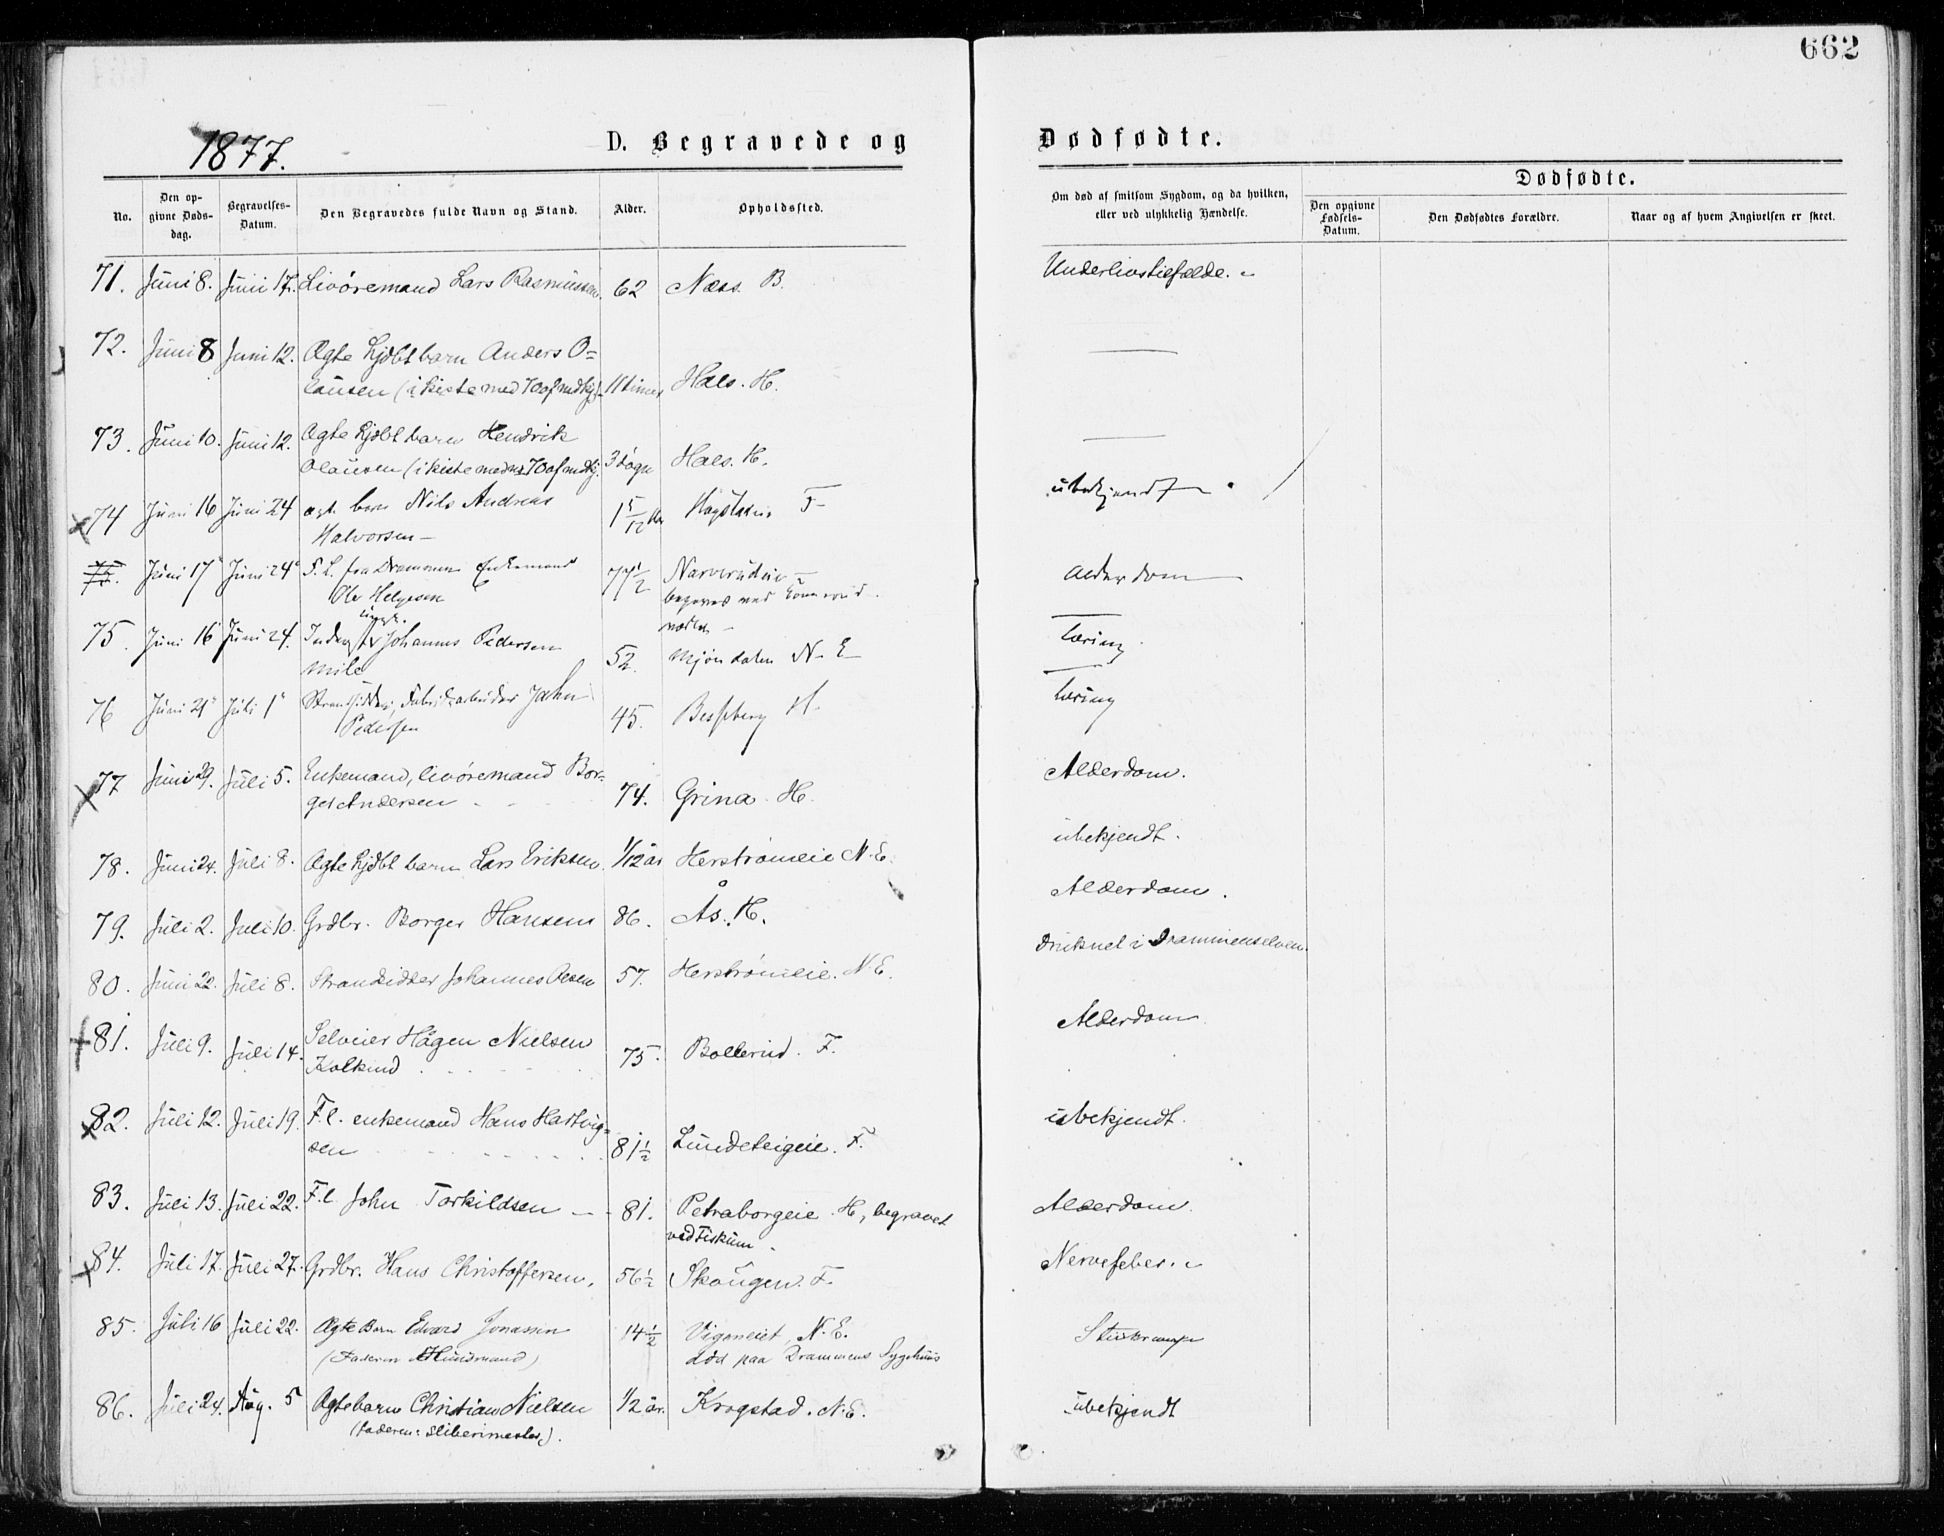 662
1877.
D. Begravede og
Dødfødte.
No.
Den op-
givne Døds-
dag.
Begravelses-
Datum.
Den Begravedes fulde Navn og Stand.
Alder.
Opholdssted.
Om død af smitsom Sygdom, og da hvilken,
eller ved ulykkelig Hændelse.
Dødfødte.
Den opgivne
Fødsels-
Datum.
Den Dødfødtes Forældre.
Naar og af hvem Angivelsen er skeet.
71. Juni 8. Juni 17. Livøremand Lars Rasmussen. 62 Næss. B. Underlivstilfælde.
72. Juni 8 Juni 12. Ægte hjdbt barn Anders O=
lausen (i kiste med 70 af mdkj). 11 timer Hals. H. —
73. Juni 10. Juni 12. Ægte hjdbt barn Hendrik
Olausen (i kiste med 70 af mdkj. 3 døgn Hals. H. —
74 Juni 16 Juni 24 ægt. barn Nils Andreas
Halvorsen — 1 5/12 Hagstadeie F- ubekjendt
75. Juni 17 Juni 24 F. L. fra Drammen Enkemand
Ole Helgesen 77 1/2 Narverudeie —
begravet ved
Alderdom
75. Juni 16 Juni 24. Johannes Pedersen
Mile 52. Mjøndalen N. E tæring
76 Juni 21 Juli 1 Strandsidder, Fabrikarbeider John
Pedersen 45. Bessberg H. tæring
77 Juni 29. Juli 5. Enkemand, livøremand Bor=
ger Andersen 74. Grina H. Alderdom.
78. Juni 24. Juli 8. Ægte hjdbt barn Lars Eriksen. 1/12 år Herstrømeie N.E. ubekjendt.
79. Juli 2. Juli 10. Grdbr. Borger Hansen 86. Ås. H. Alderdom.
80. Juni 22. Juli 8. Strandsidder Johannes Olsen 57. Herstrømeie. N.E. Druknet i Drammenselven.
81. Juli 9. Juli 14. Selveier Hågen Nielsen
Kolkind 75. Bollerud. F. Alderdom
82. Juli 12. Juli 19. F.l. enkemand Hans Hartvig=
sen 81 1/2 Lundeteigeie. F. ubekjendt.
83. Juli 13. Juli 22. F.l. John Torkildsen — 81. Petraborgeie. H, begravet
ved Fiskum. Alderdom.
84. Juli 17. Juli 27. Grdbr. Hans Christoffersen. 56 1/2 Skougen. F. Nervefeber.
85. Juli 16 Juli 22. Ægte Barn Edvard Jonassen
(Faderen Husmand) 14 1/2 Viganeiet N.E.
død paa Drammens Sygehuus Stivkrampe
86. Juli 24. Aug. 5 Ægte barn Christian Nielsen
(faderen: Slibermester). 1/2 år. Krogstad. N.E. ubekjendt